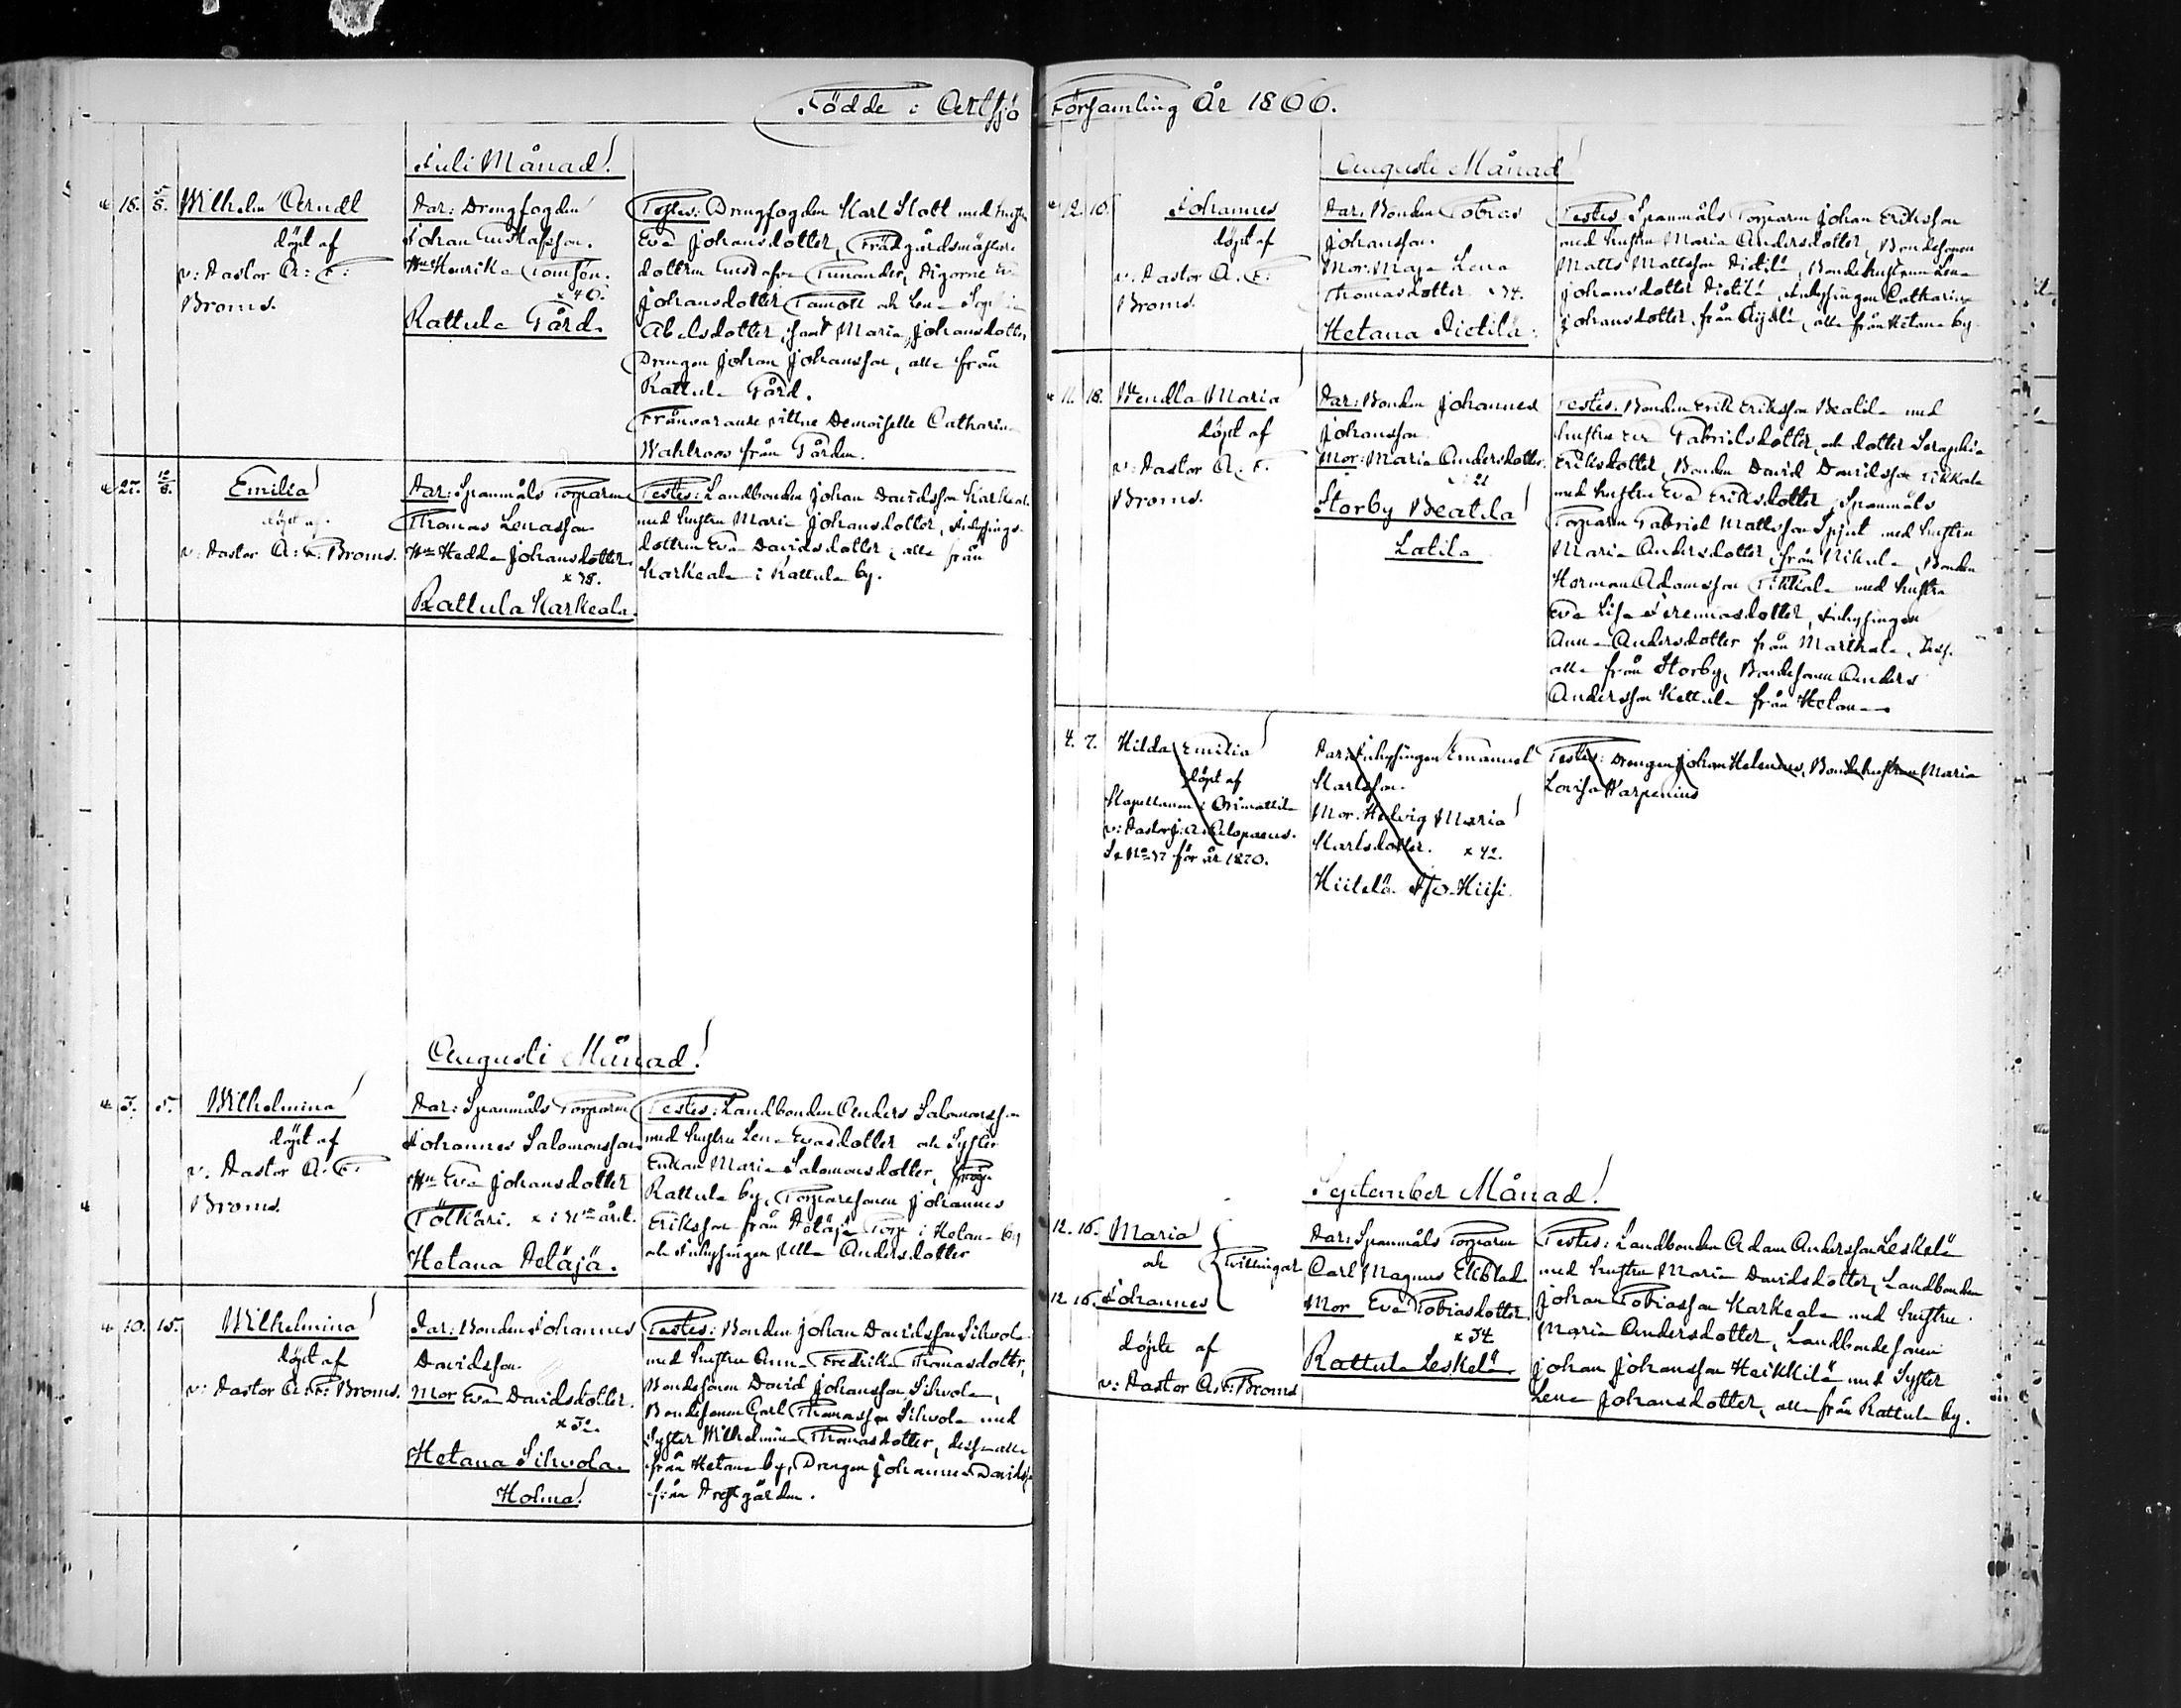 Födde i Artsjö Församling År 1866.
Juli Månad!
18. 5/8. Wilhelm Arndt
döpt af
v: Pastor A: F:
Broms.
Par: Drengfogden
Johan Gustafsson.
Hu Henrika Tomsén.
x 40.
Rattula Gård.
Testes: Drengfogden Karl Statt med hustru
Eva Johansdotter, Trädgårdsmästare
dottren Gustafva Tunander, Pigorne Eva
Johansdotter Tamott och Lena Sophia
Abelsdotter, samt Maria Johansdotter
Drengen Johan Johansson, alla från
Rattula Gård.
Frånvarande vittne Demoiselle Catharina
Wahlroos från Gården.
27. 12/8. Emilia
döpt af
v: Pastor A: F: Broms.
Par: Spanmåls Torparen
Thomas Lenasson
Hu Hedda Johansdotter
x 38.
Rattula Karkeala.
Testes: Landbonden Johan Davidsson Karkeala
med hustru Maria Johansdotter, Inhysings-
dottren Eva Davidsdotter, alla från
Karkeala i Rattula by.
Augusti Månad!
3. 5. Wilhelmina
döpt af
v. Pastor A: F:
Broms.
Par: Spanmåls Torparen
Johannes Salomonsson
Hu Eva Johansdotter
Tötkäri. x i 31te året.
Hetana Peläjä.
Testes: Landbonden Anders Salomonsson
med hustru Lena Evasdotter och Syster
Enkan Maria Salomonsdotter, från
Rattula by, Torparesonen Johannes
Eriksson från Peläjä Torp i Hetana by
och Inhysingen Ulla Andersdotter
10. 15. Wilhelmina
döpt af
v: Pastor A: F: Broms.
Par: Bonden Johannes
Davidsson.
Mor Eva Davidsdotter.
x 32.
Hetana Sihvola
Holma!
Testes: Bonden Johan Davidsson Sihvola
med hustru Anna Fredrika Thomasdotter,
Bondesonen David Johansson Sihvola,
Bondesonen Carl Thomasson Sihvola med
Syster Wilhelmina Thomasdotter, dessa alla
från Hetana by, Drengen Johannes Davidsson
från Prestgården.
Augusti Månad
12. 10. Johannes
döpt af
v: Pastor A. F.
Broms.
Par: Bonden Tobias
Johansson.
Mor: Maja Lena
Thomasdotter. x 34.
Hetana Pietilä.
Testes: Spanmåls Torparen Johan Eriksson
med hustru Maria Andersdotter, Bondesonen
Matts Mattsson Pietilä, Bondehustrun Lena
Johansdotter Pietilä, Inhysingen Catharina
Johansdotter, från Äijälä, alla från Hetana by.
11. 18. Wendla Maria
döpt af
v: Pastor A. F.
Broms.
Par: Bonden Johannes
Johansson
Mor: Maria Andersdotter.
x 21
Storby Beatila
Latila
Testes: Bonden Erik Eriksson Beatila med
hustru Eva Gabrielsdotter, och dotter Seraphia
Eriksdotter, Bonden David Davidsson Tikkala
med hustru Eva Eriksdotter, Spanmåls
Torparen Gabriel Mattsson Spjut med hustru
Maria Andersdotter, från Nikula, Bonden
Herman Adamsson Tikkala med hustru
Eva Lisa Jeremiasdotter, Inhysingen
Anna Andersdotter från Marthala, dessa
alla från Storby, Bondesonen Anders
Andersson Kettula från Hetana
4. 7. Hilda Emilia
döpt af
Kapellanen i Orimattila
v: Pastor J: A: Alopaeus.
Se No 37 för år 1870.
Par: Inhysingen Emanuel
Karlsson.
Mor. Hedvig Maria
Karlsdotter. x 42.
Hiitelä Iso-Hiisi.
Testes: Drengen Johan Helenius, Bondehustrun Maria
Lovisa Warpenius
September Månad!
12. 16. Maria
och } Tvillingar
12. 16. Johannes
döpte af
v: Pastor A. F: Broms
Par: Spanmåls Torparen
Carl Magnus Ekblad
Mor Eva Tobiasdotter.
x 34.
Rattula Leskelä
Testes: Landbonden Adam Andersson Leskelä
med hustru Maria Davidsdotter, Landbonden
Johan Tobiasson Karkeala med hustru
Maria Andersdotter, Landbondesonen
Johan Johansson Heikkilä med Syster
Lena Johansdotter, alla från Rattula by.